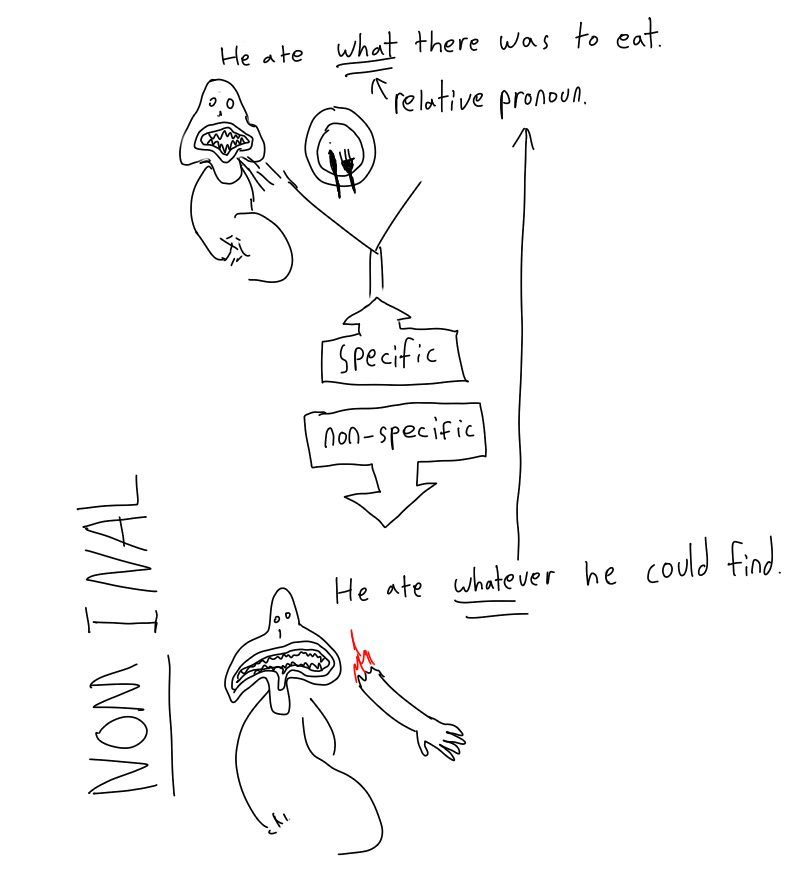 He ate what there was to eat.
relative pronoun.
specific
non-specific
NOMINAL
He ate whatever he could find.